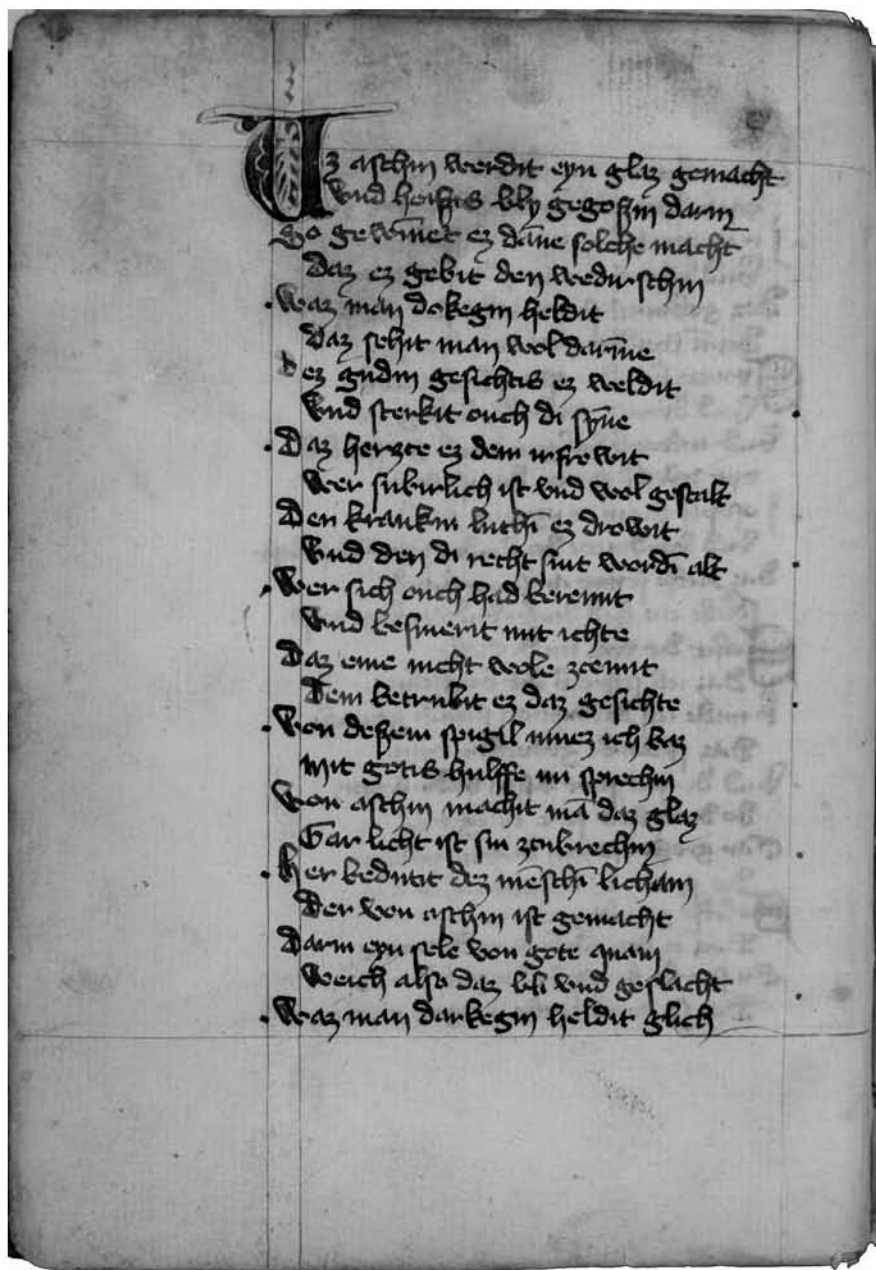 Uz aschin werdit eyn glaz gemacht
Vnd heißis bly gegoßin darin
So gewīnet ez dāne solche macht
Daz ez gebit den wedirschin
Waz man dokegin heldit
Daz sehit man wol darīne
Dez gudin gesichtis ez weldit
Vnd sterkit ouch di sȳne
Daz herzce ez dem irfrowit
Wer subirlich ist vnd wol gestalt
Den krankin luthī ez drowit
Vnd den di recht sint wordī alt
Wer sich ouch had beremit
Vnd besmerit mit ichte
Daz eme nicht wole zcemit
Dem betrubit ez daz gesichte
Von deßem spigil muez ich baz
Mit gotis hulffe nu sprechin
Von aschin machit mā daz glaz
Gar licht ist sin zcubrechin
Her bedutit dez mēschī licham
Der von aschin ist gemacht
Darin eyn sele von gote quam
Weich also daz bli vnd geslacht
Waz man darkegin heldit glich